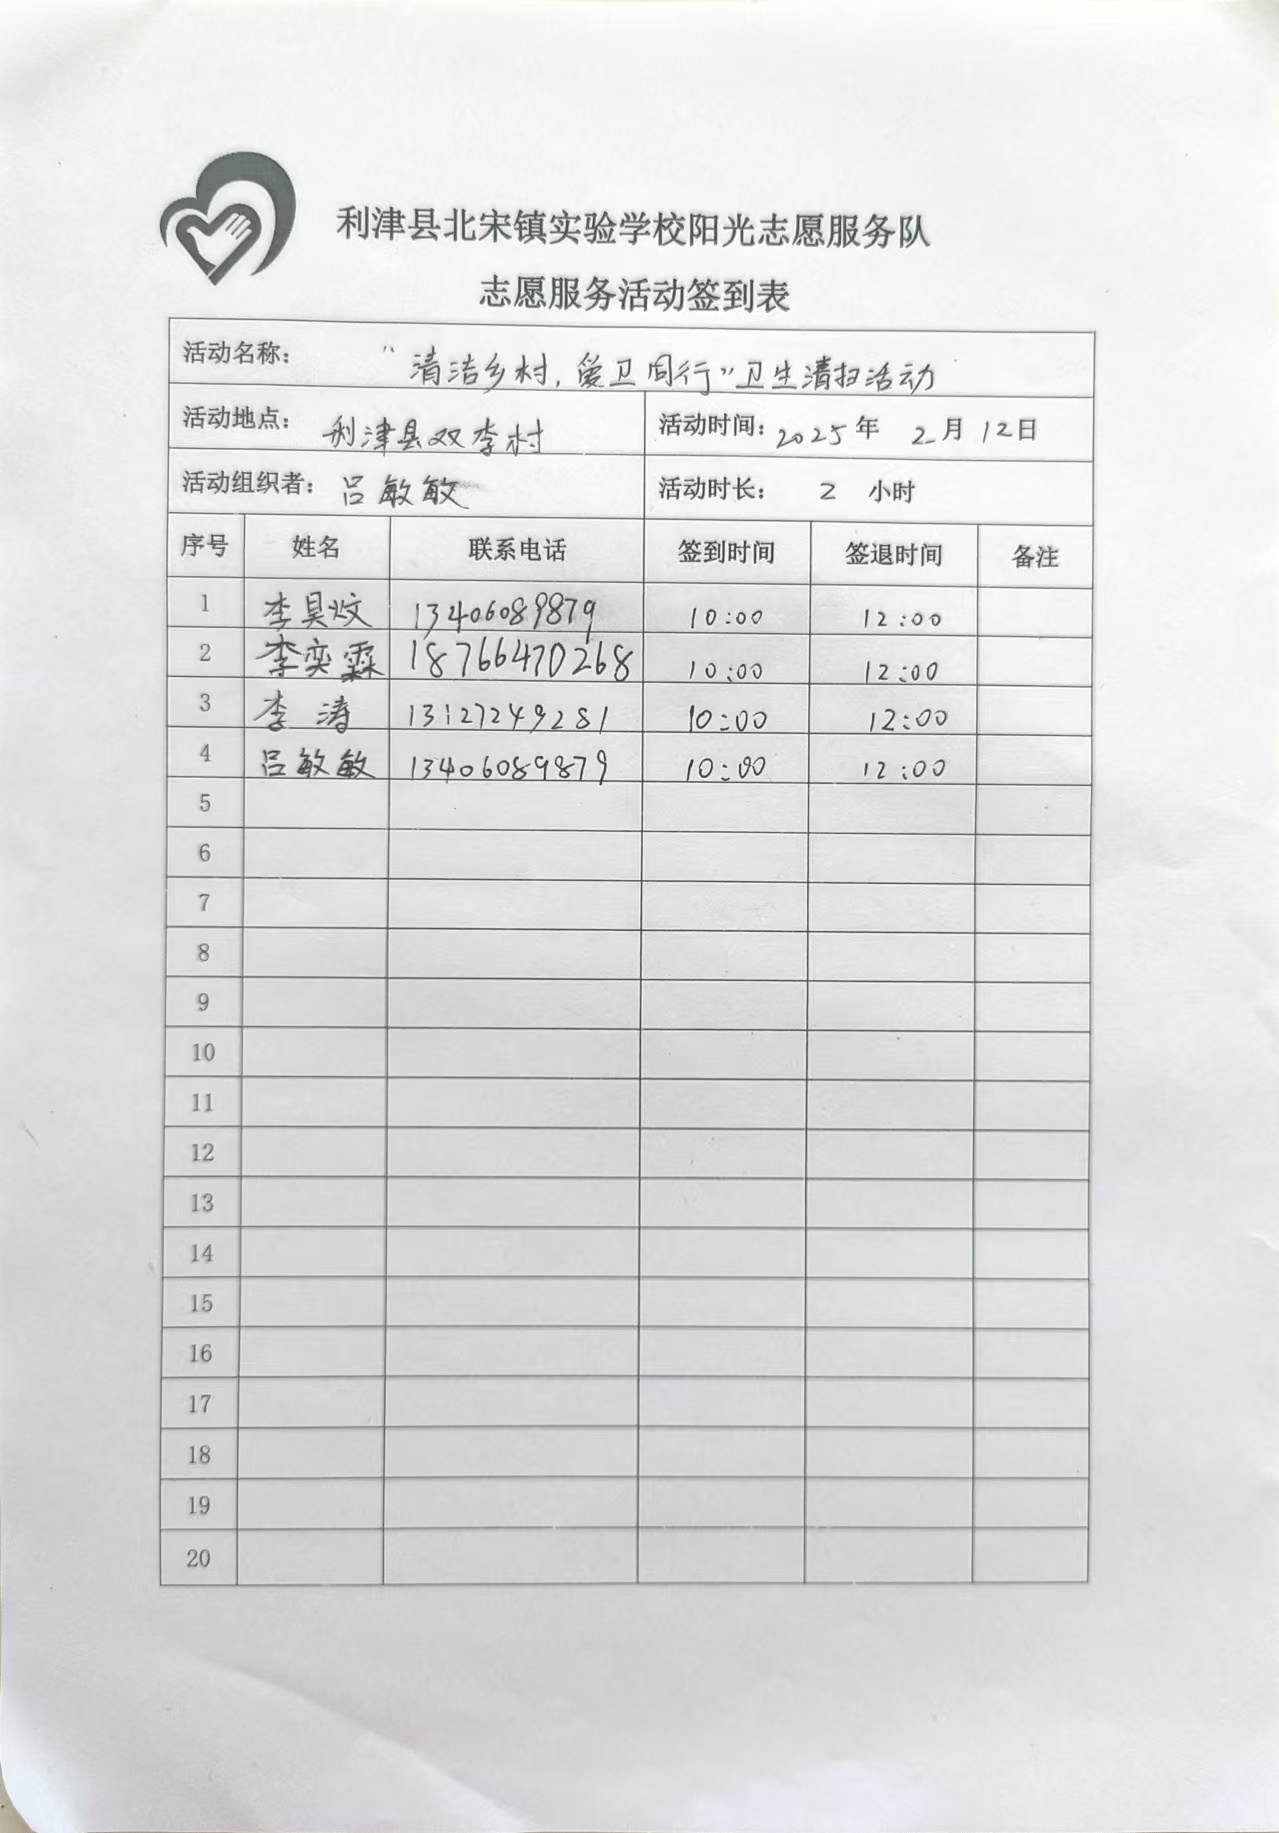 利津县北宋镇实验学校阳光志愿服务队
志愿服务活动签到表
活动名称： “清洁乡村，爱卫同行”卫生清扫活动
活动地点： 利津县双李村 活动时间：2025年 2月12日
活动组织者：吕敏敏 活动时长： 2 小时
序号 姓名 联系电话 签到时间 签退时间 备注
1 李昊炆 13406089879 10:00 12:00
2 李奕霖 18766470268 10:00 12:00
3 李涛 13127249281 10:00 12:00
4 吕敏敏 13406089879 10:00 12:00
5
6
7
8
9
10
11
12
13
14
15
16
17
18
19
20